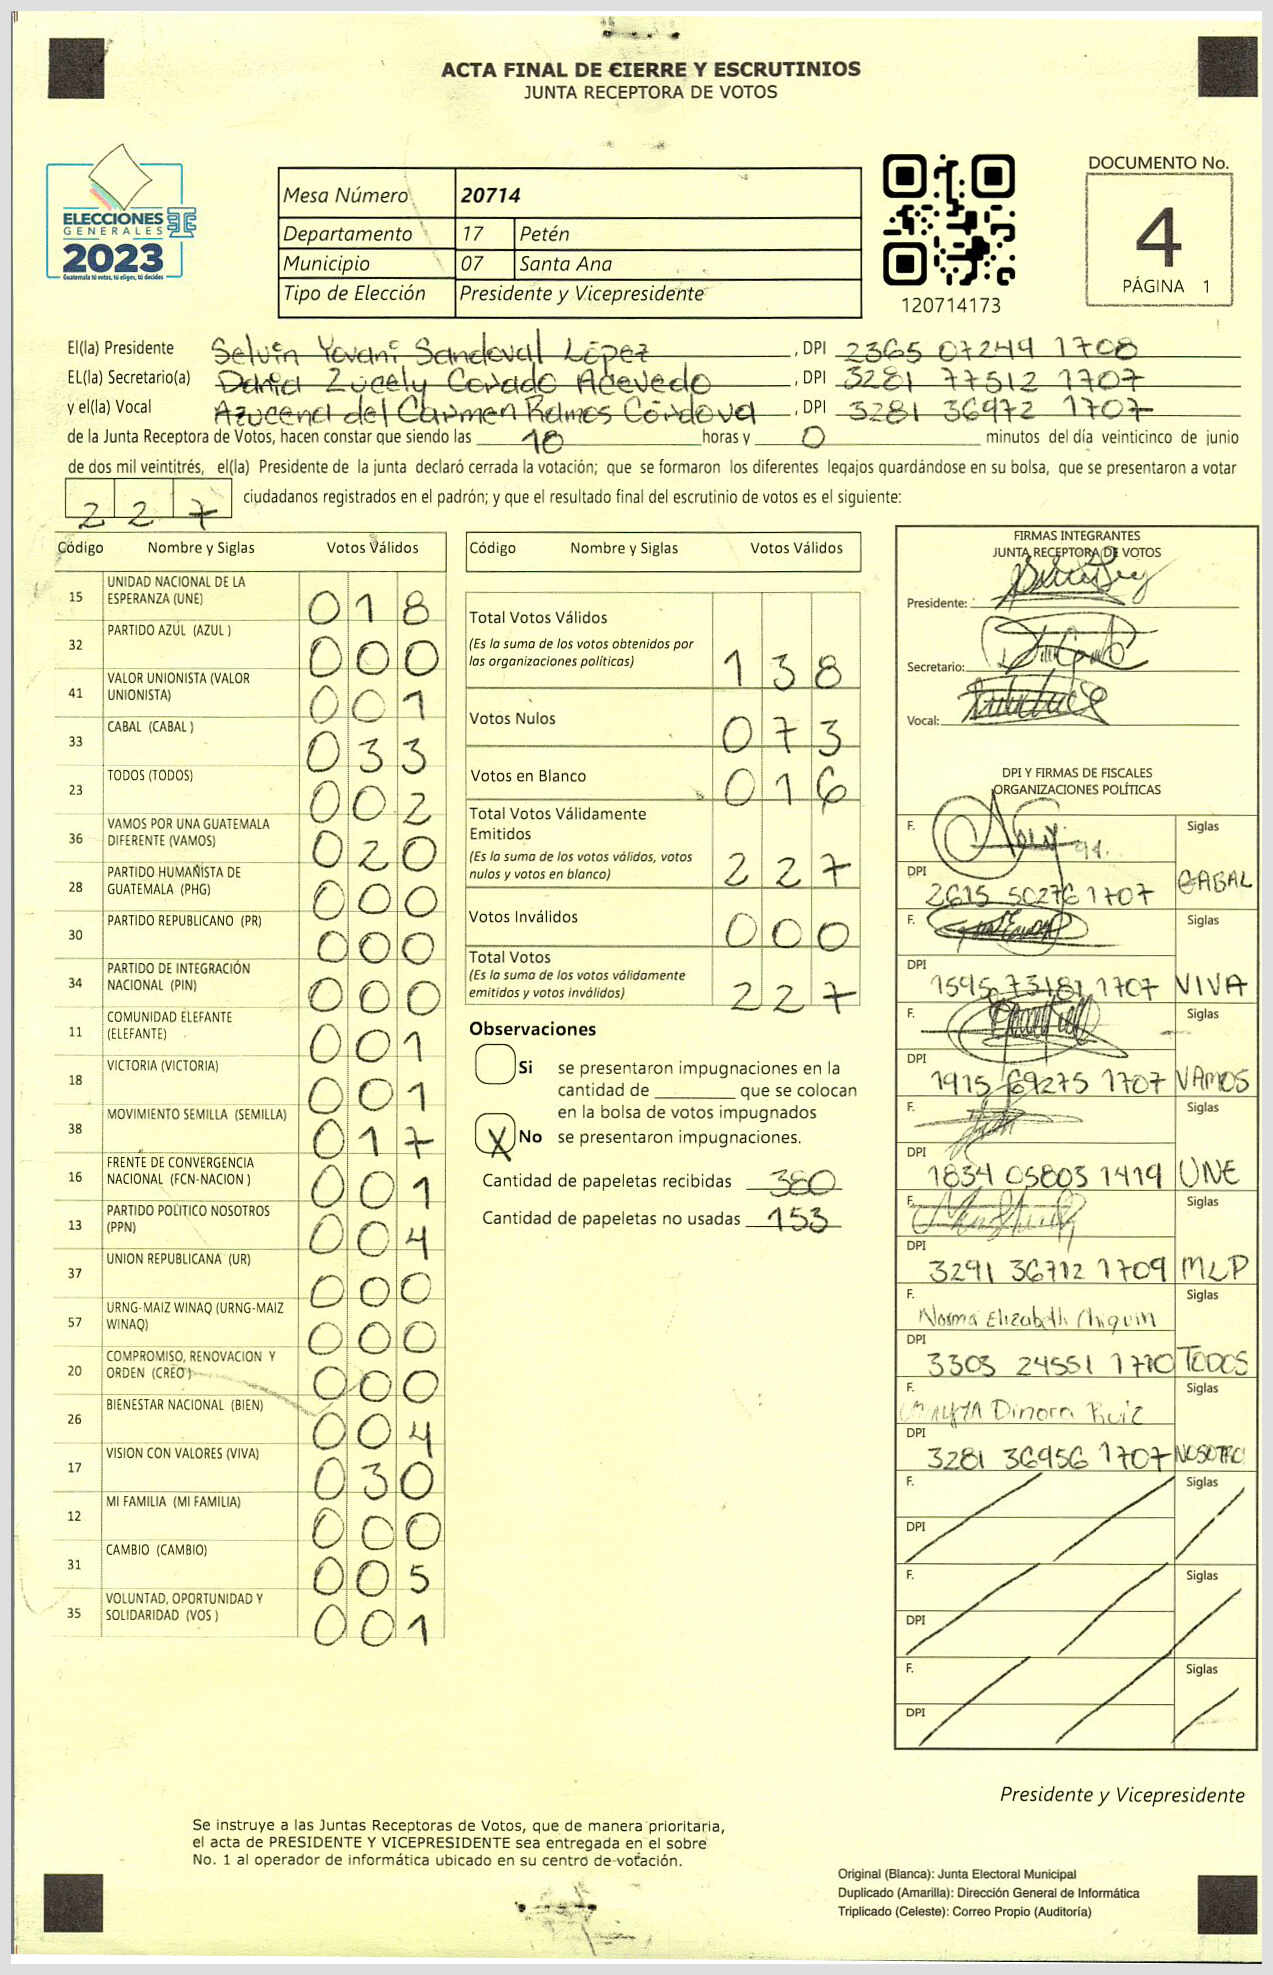 ACTA FINAL DE CIERRE Y ESCRUTINIOS
JUNTA RECEPTORA DE VOTOS
ELECCIONES
GENERALES
2023
Guatemala tú votas, tú eliges, tú decides
Mesa Número 20714
Departamento 17 Petén
Municipio 07 Santa Ana
Tipo de Elección Presidente y Vicepresidente
120714173
DOCUMENTO No.
4
PÁGINA 1
El(la) Presidente Selvin Yovani Sandoval López, DPI 2365 07249 1708
EL(la) Secretario(a) Dania Zucely Corado Acevedo, DPI 3281 77512 1707
y el(la) Vocal Azucena del Carmen Ramos Córdova, DPI 3281 36972 1707
de la Junta Receptora de Votos, hacen constar que siendo las 18 horas y 0 minutos del día veinticinco de junio
de dos mil veintitrés, el(la) Presidente de la junta declaró cerrada la votación; que se formaron los diferentes legajos guardándose en su bolsa, que se presentaron a votar
227 ciudadanos registrados en el padrón; y que el resultado final del escrutinio de votos es el siguiente:
Código Nombre y Siglas Votos Válidos
15 UNIDAD NACIONAL DE LA ESPERANZA (UNE) 018
32 PARTIDO AZUL (AZUL ) 000
41 VALOR UNIONISTA (VALOR UNIONISTA) 001
33 CABAL (CABAL ) 033
23 TODOS (TODOS) 002
36 VAMOS POR UNA GUATEMALA DIFERENTE (VAMOS) 020
28 PARTIDO HUMANISTA DE GUATEMALA (PHG) 000
30 PARTIDO REPUBLICANO (PR) 000
34 PARTIDO DE INTEGRACIÓN NACIONAL (PIN) 000
11 COMUNIDAD ELEFANTE (ELEFANTE) 001
18 VICTORIA (VICTORIA) 001
38 MOVIMIENTO SEMILLA (SEMILLA) 017
16 FRENTE DE CONVERGENCIA NACIONAL (FCN-NACION ) 001
13 PARTIDO POLITICO NOSOTROS (PPN) 004
37 UNION REPUBLICANA (UR) 000
57 URNG-MAIZ WINAQ (URNG-MAIZ WINAQ) 000
20 COMPROMISO, RENOVACION Y ORDEN (CREO ) 000
26 BIENESTAR NACIONAL (BIEN) 004
17 VISION CON VALORES (VIVA) 030
12 MI FAMILIA (MI FAMILIA) 000
31 CAMBIO (CAMBIO) 005
35 VOLUNTAD, OPORTUNIDAD Y SOLIDARIDAD (VOS ) 001
Código Nombre y Siglas Votos Válidos
Total Votos Válidos 138
(Es la suma de los votos obtenidos por
las organizaciones políticas)
Votos Nulos 073
Votos en Blanco 016
Total Votos Válidamente
Emitidos 227
(Es la suma de los votos válidos, votos
nulos y votos en blanco)
Votos Inválidos 000
Total Votos 227
(Es la suma de los votos válidamente
emitidos y votos inválidos)
Observaciones
Si se presentaron impugnaciones en la
cantidad de ________ que se colocan
en la bolsa de votos impugnados
X No se presentaron impugnaciones.
Cantidad de papeletas recibidas 380
Cantidad de papeletas no usadas 153
FIRMAS INTEGRANTES
JUNTA RECEPTORA DE VOTOS
Presidente:
Secretario:
Vocal:
DPI Y FIRMAS DE FISCALES
ORGANIZACIONES POLÍTICAS
F. Siglas
DPI 2615 50276 1707 CABAL
F. Siglas
DPI 1595 73181 1707 VIVA
F. Siglas
DPI 1915 69275 1707 VAMOS
F. Siglas
DPI 1834 05803 1419 UNE
F. Siglas
DPI 3291 36712 1709 MLP
F. Norma Elizabeth Chiquin Siglas
DPI 3303 24551 1710 TODOS
F. Dinora Ruiz Siglas
DPI 3281 36956 1707 NOSOTRO
F. Siglas
DPI
F. Siglas
DPI
F. Siglas
DPI
Presidente y Vicepresidente
Se instruye a las Juntas Receptoras de Votos, que de manera prioritaria,
el acta de PRESIDENTE Y VICEPRESIDENTE sea entregada en el sobre
No. 1 al operador de informática ubicado en su centro de votación.
Original (Blanca): Junta Electoral Municipal
Duplicado (Amarilla): Dirección General de Informática
Triplicado (Celeste): Correo Propio (Auditoría)